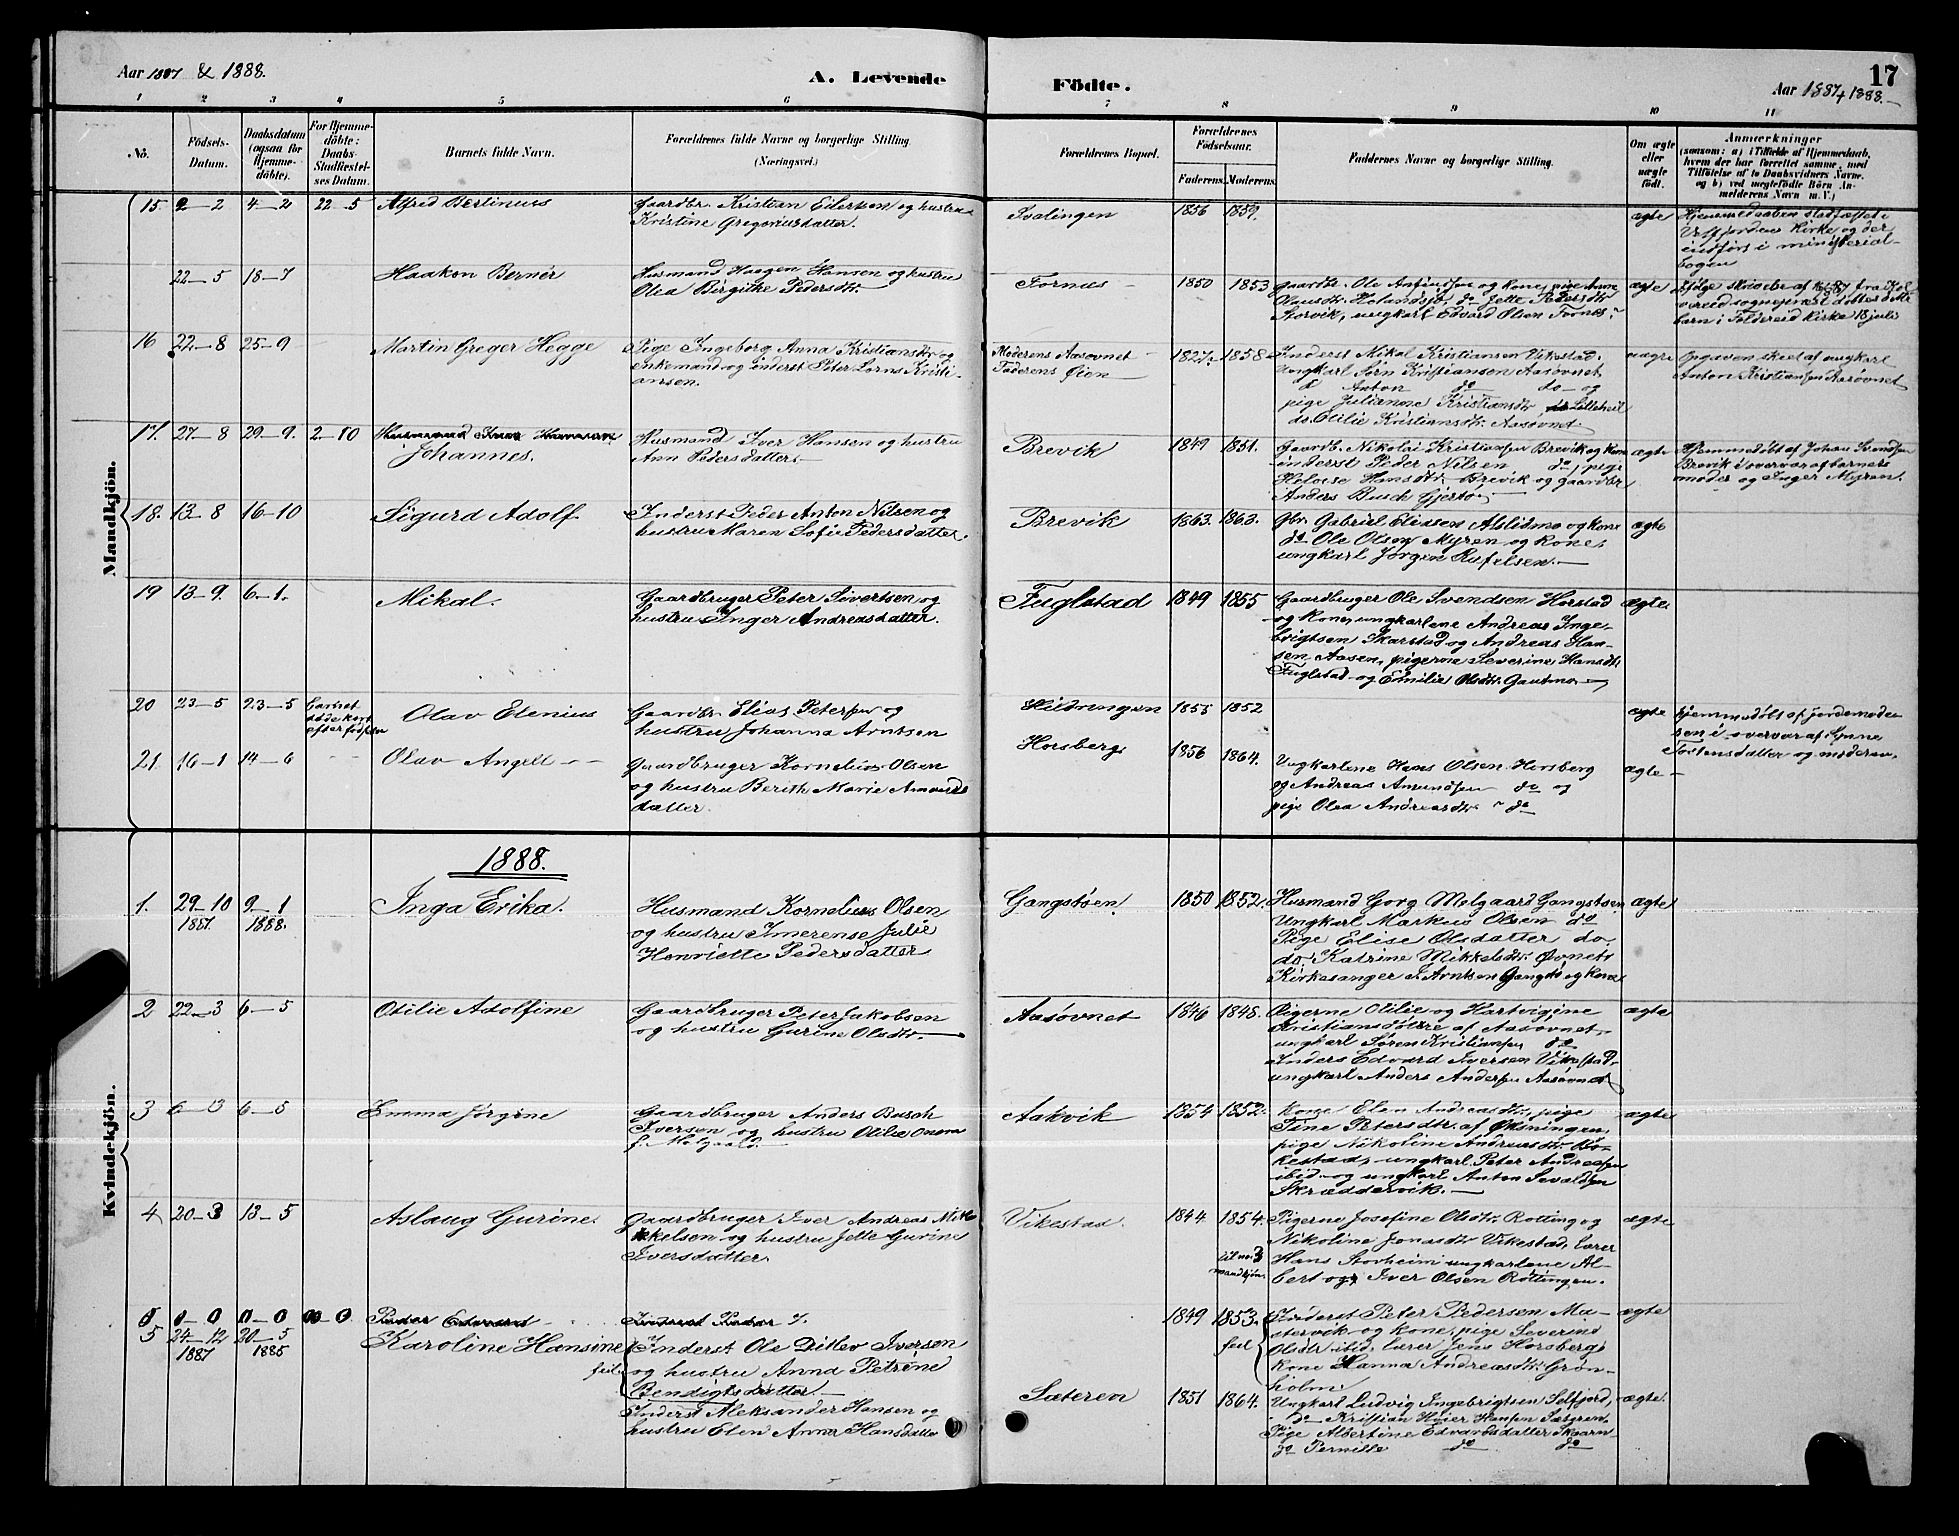 Aar 1887 & 1888.
A. Levende
Födte.
Aar 1887 + 1888.
17
1 2 3 4 5 6 7 8 9 10 11
No. Födsels-Datum. Daabsdatum (ogsaa for Hjemme-döbte). For Hjemme-döbte: Daabs-Stadfæstel-ses Datum. Barnets fulde Navn. Forældrenes fulde Navne og borgerlige Stilling. (Næringsvei.)
Forældrenes Bopæl. Forældrenes Födselsaar. Faderens. Moderens. Faddernes Navne og borgerlige Stilling. Om ægte eller uægte födt. Anmærkninger (saasom: a) i Tilfælde af Hjemmedaab, hvem der har forrettet samme, med Tilföielse af to Daabsvidners Navne, og b) ved uægtefödte Börn An-melderens Navn m. V.)
Mandkjön.
15. 2–2 4–2 22–5 Alfred Bertinus
Gaardbr. Kristian Eilertsen og hustru
Kristine Gregoriusdatter.
Svalingen 1856 1859. ægte
Hjemmedaaben stadfæstet i
Vestfjordens Kirke og der
indført i ministerial-
bogen
22–5 18–7 Haakon Bernér
Husmand Haagen Hansen og hustru
Olea Birgitke Pedersdtr.
Fornæs 1850 1853
Gaardbr. Ole Anfinsen og kone, pige Anne
Olausdtr. Holandsjö, do Jette Pedersdtr
Storvik, ungkarl Edvard Olsen Fornes.
ægte
barn i Foldereid Kirke 18 juli
16 22–8 25–9 Martin Greger Hegge
Pige Ingeborg Anna Kristiansdtr. og
enkemand og inderst Peter Lorns Kristi-
ansen.
Moderens Aasovnet
Faderens Øien
1827. 1858
Inderst Mikal Kristiansen Vikestad.
Ungkarl Sørn Kristiansen Aasovnet
do Anton do do og
pige Julianne Kristiansdtr.
do. Otilie Kristiansdtr. Aasovnet
uægte
Opgaven skeet af ungkarl
Anton Kristiansen Aasøvnet
17. 27–8 29–9. 2–10
Johannes.
Husmand Iver Hansen og hustru
Ann Pedersdatter.
Brevik 1849 1851.
Gaardb. Nikolai Kristiansen Brevik og kone
inderst Peder Nilsen do, pige
Heloise Hansdtr. Brevik og gaardbr
Anders Busch Gjertø
ægte
Hjemmedøbt af Johan Svendsen
Brevik i overvær af barnets
moder og Inger Myran.
18. 13–8 16–10 Sigurd Adolf
Inderst Peder Anton Nilsen og
hustru Maren Sofie Pedersdatter.
Brevik 1863. 1863.
Gbr. Gabriel Eliasen Alslidmo og kone
do Ole Olsen Myren og kone,
ungkarl Jørgen Rufelsen.
ægte
19 13–9 6–1. Mikal.
Gaardbruger Peter Sivertsen og
hustru Inger Andreasdatter.
Fuglstad 1849 1855
Gaardbruger Ole Svendsen Horstad
og kone, ungkarlene Andreas Inge-
brigtsen Skarstad og Andreas Han-
sen Aasen, pigerne Severine Hansdt.
Fuglstad og Emilie Olsdtr. Gautmo
ægte
20 23–5 23–5 barnet
døde kort
efter fødselen
Olav Elenius
Gaardbr. Elias Petersen og
hustru Johanna Arntsen
Hildringen 1855 1852 ægte
hjemmedøbt af jordemoderen
Torstensdatter og moderen.
21. 16–1 14–6 Olav Angell
Gaardbruger Kornelius Olsen
og hustru Berith Marie Amunds
datter.
Horsberg 1856 1864.
Ungkarlene Hans Olsen Horsberg
og Andreas Amundsen do og
pige Olea Andreasdtr. do
ægte
1888.
Kvindekjön.
1. 29–10 1887. 9–1 1888. Inga Erika.
Husmand Kornelius Olsen
og hustru Imerense Julie
Henriette Pedersdatter
Gangstøen. 1850 1852.
Husmand Georg Melgaard Gangstøen
Ungkarl Markus Olsen do
Pige Elise Olsdatter do.
do. Katrine Mikkelsdtr. Øvnets
Kirkesanger J. Arntsen Gangstø og kone
ægte
2 22–3 6–5 Otilie Adolfine
Gaardbruger Peter Jakobsen
og hustru Gurine Olsdtr.
Aasovnet 1846 1848.
Pigerne Otilie og Hartvigine
Kristiansdøttre af Aasovnet
ungkarl Søren Kristiansen do
Inders Edvard Iversen Vikestad
ungkarl Anders Andersen Aasovnet
ægte
3 6–3 6–5 Emma Jörgine
Gaardbruger Anders Busch
Iversen og hustru Otilie Onora
f. Melgaard.
Aakvik 1854 1852.
Kone Elen Andreasdtr., pige
Tine Petersdtr. af Økningen,
pige Nikoline Andreasdtr. Bø-
kestad, ungkarl Peter Andreasen
ibid og ungkarl Anton Sevaldsen
Skræddervik.
ægte
4 20–3 13–5 Aslaug Gurine.
Gaardbruger Iver Andreas Mik-
kelsen og hustru Jette Gurine
Iversdatter.
Vikestad. 1844. 1854.
til no. 3
mandkjøn.
Pigerne Josefine Olsdtr. Rotting og
Nikoline Jonasdtr Vikestad, lærer
Hans Storheim ungkarlene Al-
bert og Iver Olsen Röttingen.
ægte
Peder Edvard
Inderst Peder
1849 1853.
feil
Inderst Peter Pedersen Mu-
stervik og kone, pige Severine
Olsdtr ibid, lærer Jens Horsberg,
kone Hanna Andreasdtr. Grøn-
holm.
ægte
5 24–12 1887 20–5 1888 Karoline Hansine
feil
Inderst Ole Ditlev Iversen
og hustru Anna Petrine
Bendigtsdatter.
Inderst Aleksander Hansen og
hustru Elen Anna Hansdatter
Sæteren 1851 1864.
Ungkarl Ludvig Ingebrigtsen Solfjord,
do Kristian Høier Hansen Sæteren
Pige Albertine Edvardsdatter Skaarn
do Pernille do do
ægte.